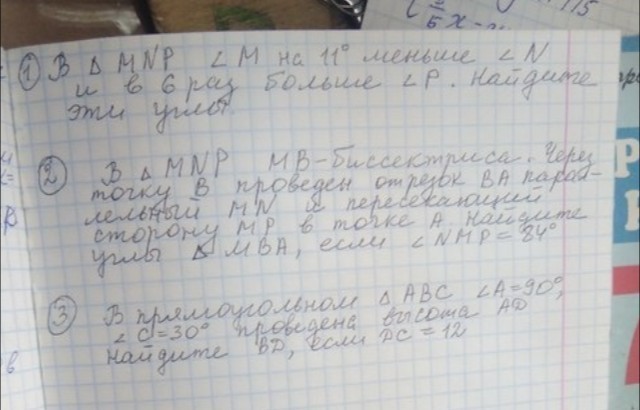 ① В △ MNP ∠M на 11° меньше ∠N
и в 6 раз больше ∠P. Найдите
эти углы.
② В △ MNP MB-биссектриса. Через
точку B проведен отрезок BA парал-
лельный MN и пересекающий
сторону MP в точке A. Найдите
углы △ MBA, если ∠NMP = 84°
③ В прямоугольном △ ABC ∠A=90°,
∠C=30° проведена высота AD
Найдите BD, если DC = 12